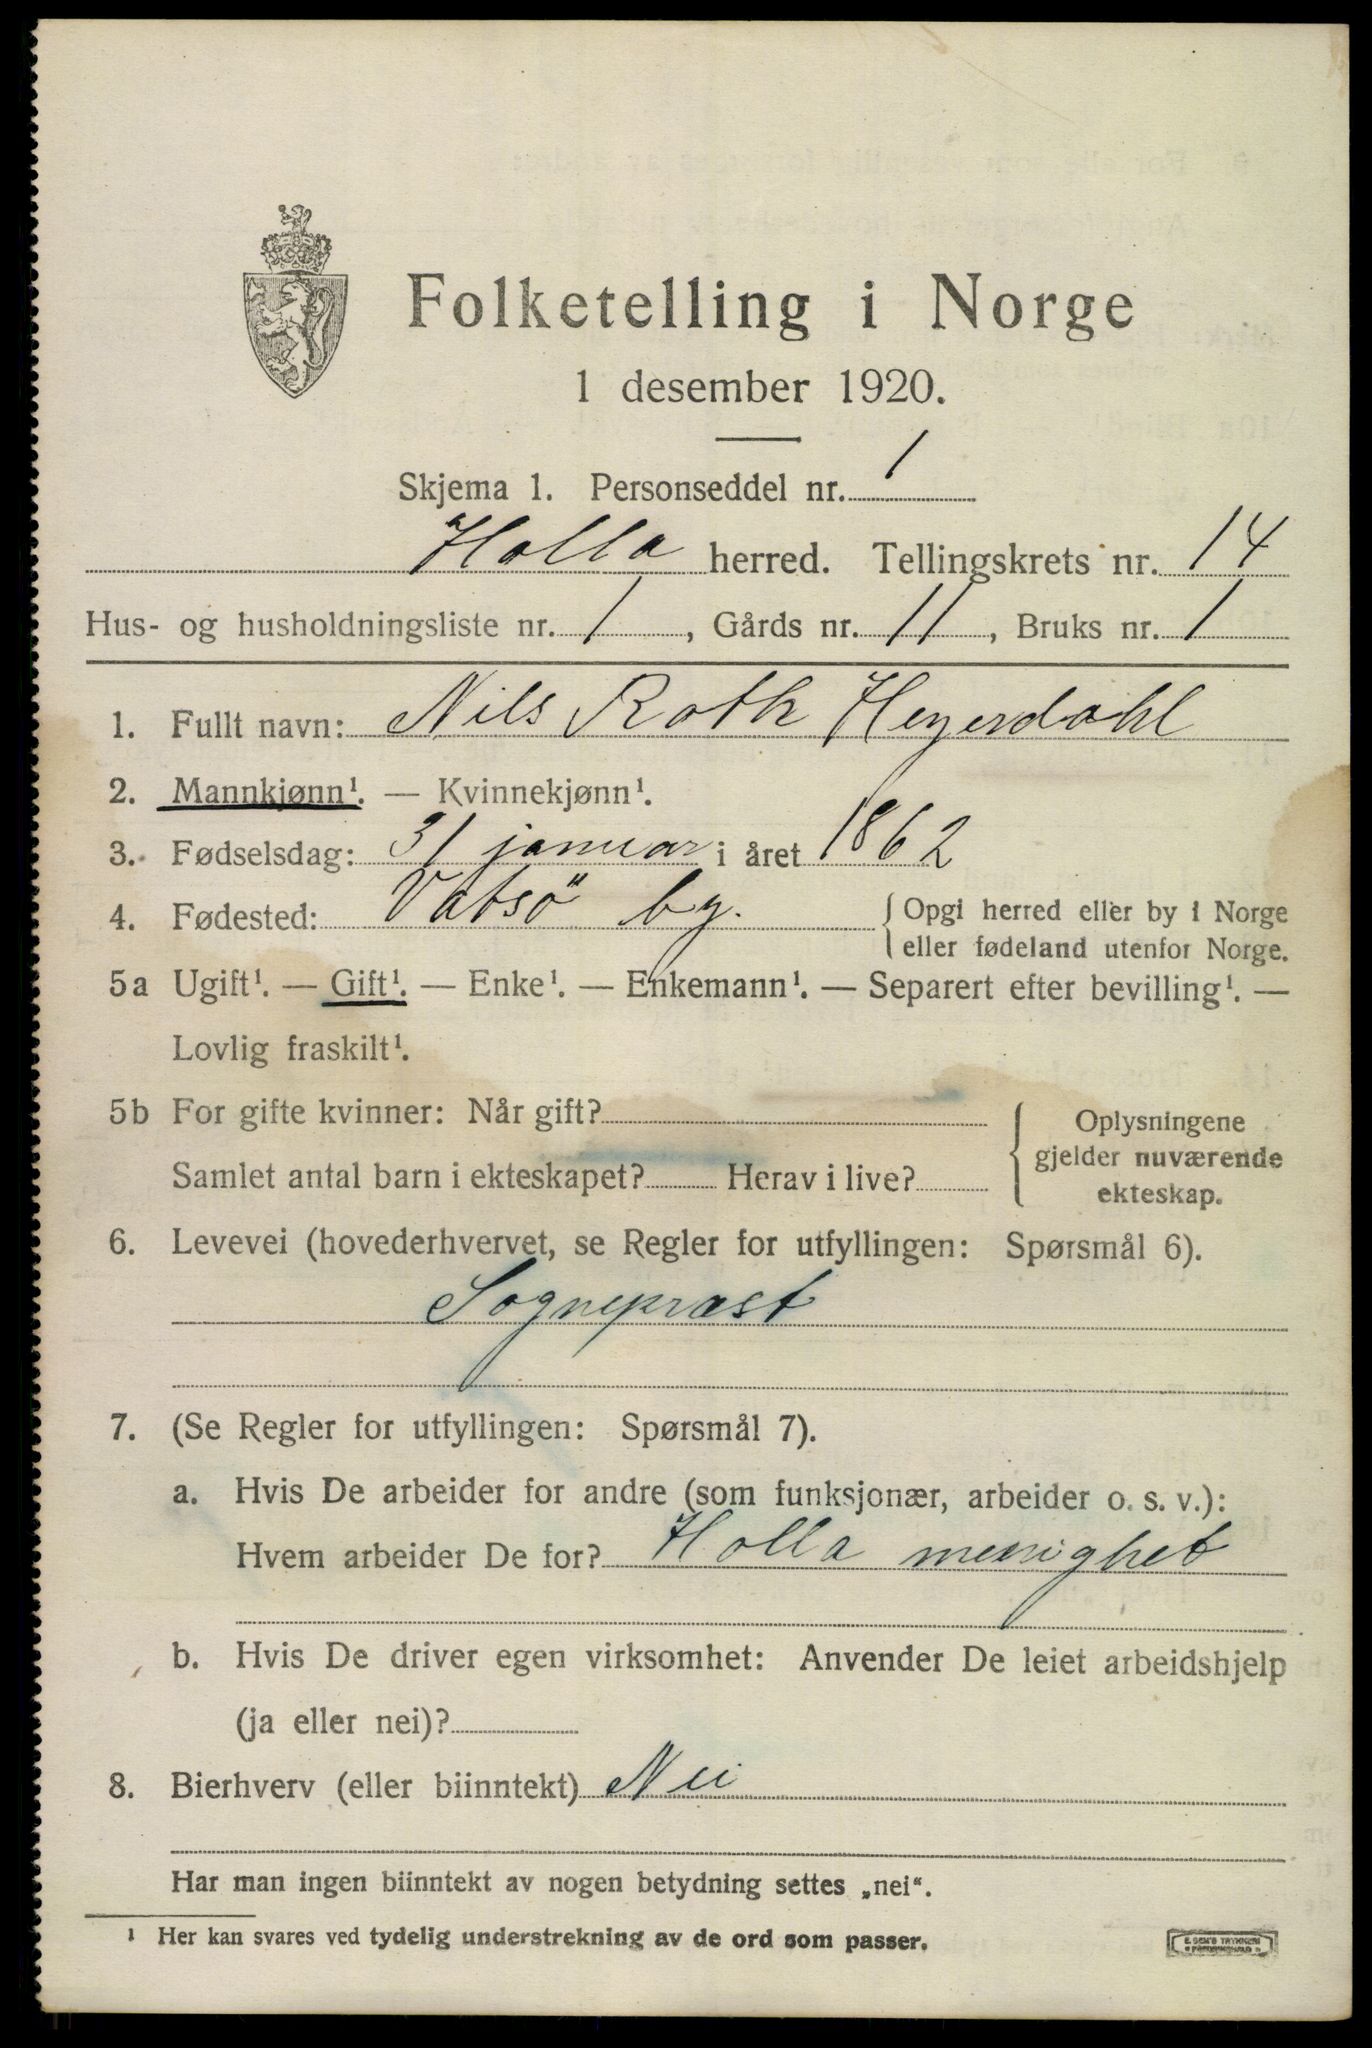 Folketelling i Norge
1 desember 1920.
Skjema 1. Personseddel nr. 1
Holla herred. Tellingskrets nr. 14
Hus- og husholdningsliste nr. 1, Gårds nr. 11, Bruks nr. 1
1. Fullt navn: Nils Roth Heyerdahl
2. Mannkjønn¹. — Kvinnekjønn¹.
3. Fødselsdag: 31 januar i året 1862
4. Fødested: Vatsö by. { Opgi herred eller by i Norge
eller fødeland utenfor Norge.
5a Ugift¹. — Gift¹. — Enke¹. — Enkemann¹. — Separert efter bevilling¹. —
Lovlig fraskilt¹.
5b For gifte kvinner: Når gift? { Oplysningene
gjelder nuværende
Samlet antal barn i ekteskapet? Herav i live? ekteskap.
6. Levevei (hovederhvervet, se Regler for utfyllingen: Spørsmål 6).
Sogneprest
7. (Se Regler for utfyllingen: Spørsmål 7).
a. Hvis De arbeider for andre (som funksjonær, arbeider o. s. v.):
Hvem arbeider De for? Holla menighet
b. Hvis De driver egen virksomhet: Anvender De leiet arbeidshjelp
(ja eller nei)?
8. Bierhverv (eller biinntekt) Nei
Har man ingen biinntekt av nogen betydning settes „nei“.
¹ Her kan svares ved tydelig understrekning av de ord som passer.